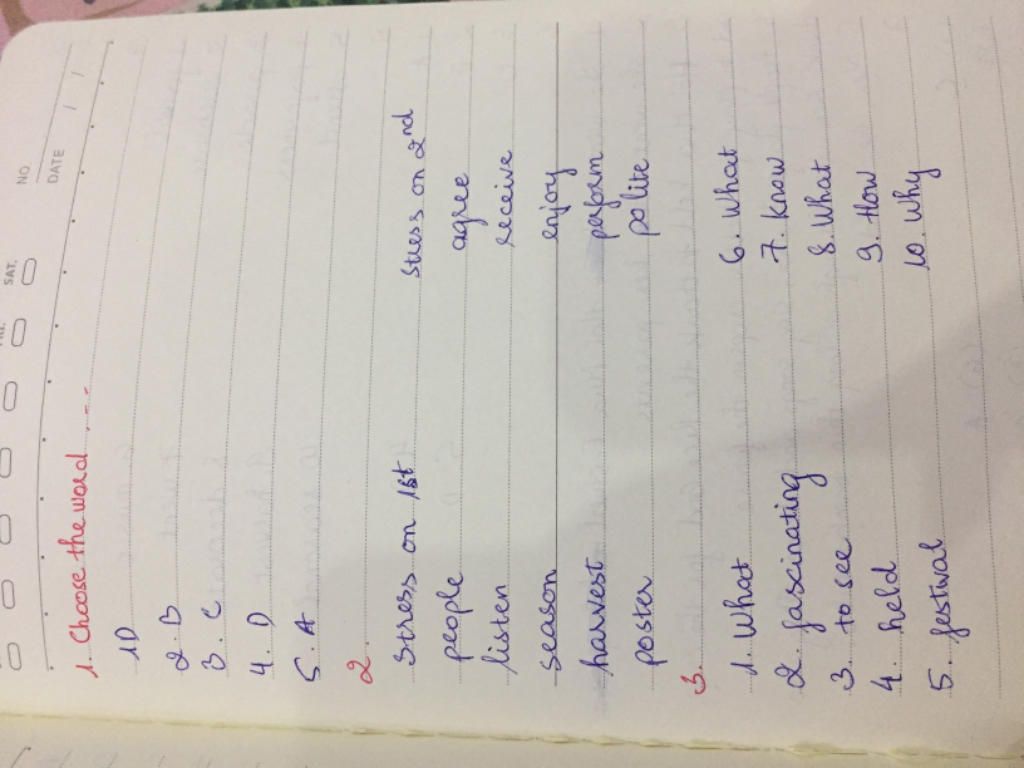 SAT.
NO
DATE / /
1. Choose the word ....
1D
2. B
3. C
4. D
5. A
2.
Stress on 1st Stress on 2nd
people agree
listen receive
season enjoy
harvest perform
poster polite
3.
1. What 6. What
2. fascinating 7. know
3. to see 8. What
4. held 9. How
5. festival 10. Why